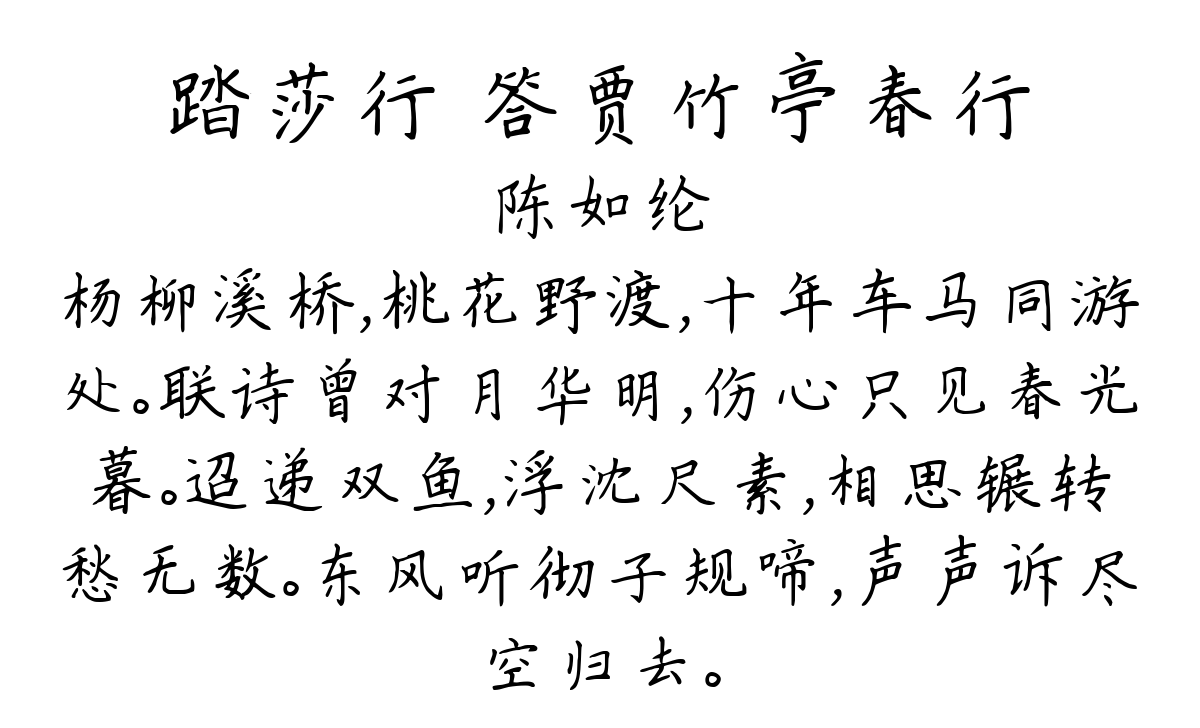 踏莎行 答贾竹亭春行
陈如纶
杨柳溪桥,桃花野渡,十年车马同游
处。联诗曾对月华明,伤心只见春光
暮。迢递双鱼,浮沈尺素,相思辗转
愁无数。东风听彻子规啼,声声诉尽
空归去。